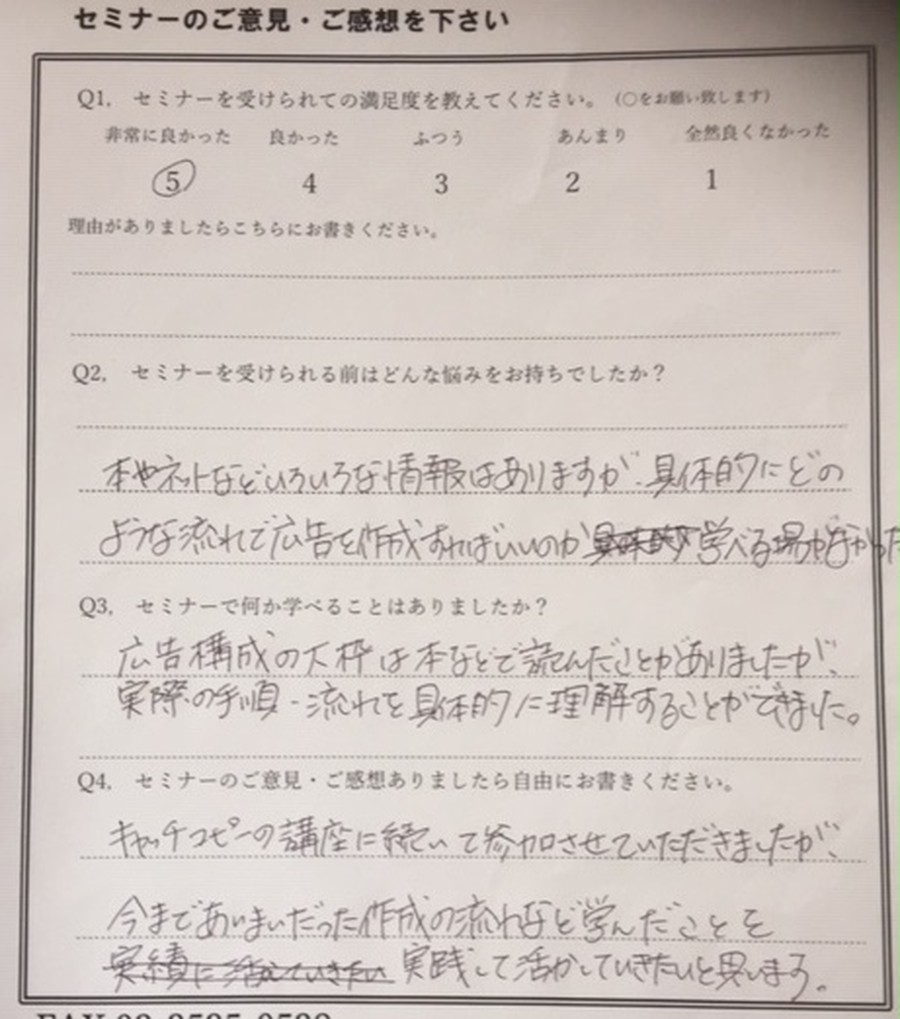 セミナーのご意見・ご感想を下さい
Q1, セミナーを受けられての満足度を教えてください。(○をお願い致します)
非常に良かった 良かった ふつう あんまり 全然良くなかった
5 4 3 2 1
理由がありましたらこちらにお書きください。
Q2, セミナーを受けられる前はどんな悩みをお持ちでしたか?
本やネットなどいろいろな情報はありますが、具体的にどの
ような流れで広告を作成すればいいのか学べる場がなかった
Q3, セミナーで何か学べることはありましたか?
広告構成の大枠は本などで読んだことがありましたが、
実際の手順・流れを具体的に理解することができました。
Q4, セミナーのご意見・ご感想ありましたら自由にお書きください。
キャッチコピーの講座に続いて参加させていただきましたが、
今まであいまいだった作成の流れなど学んだことを
実績に活えていきたい 実践して活かしていきたいと思います。